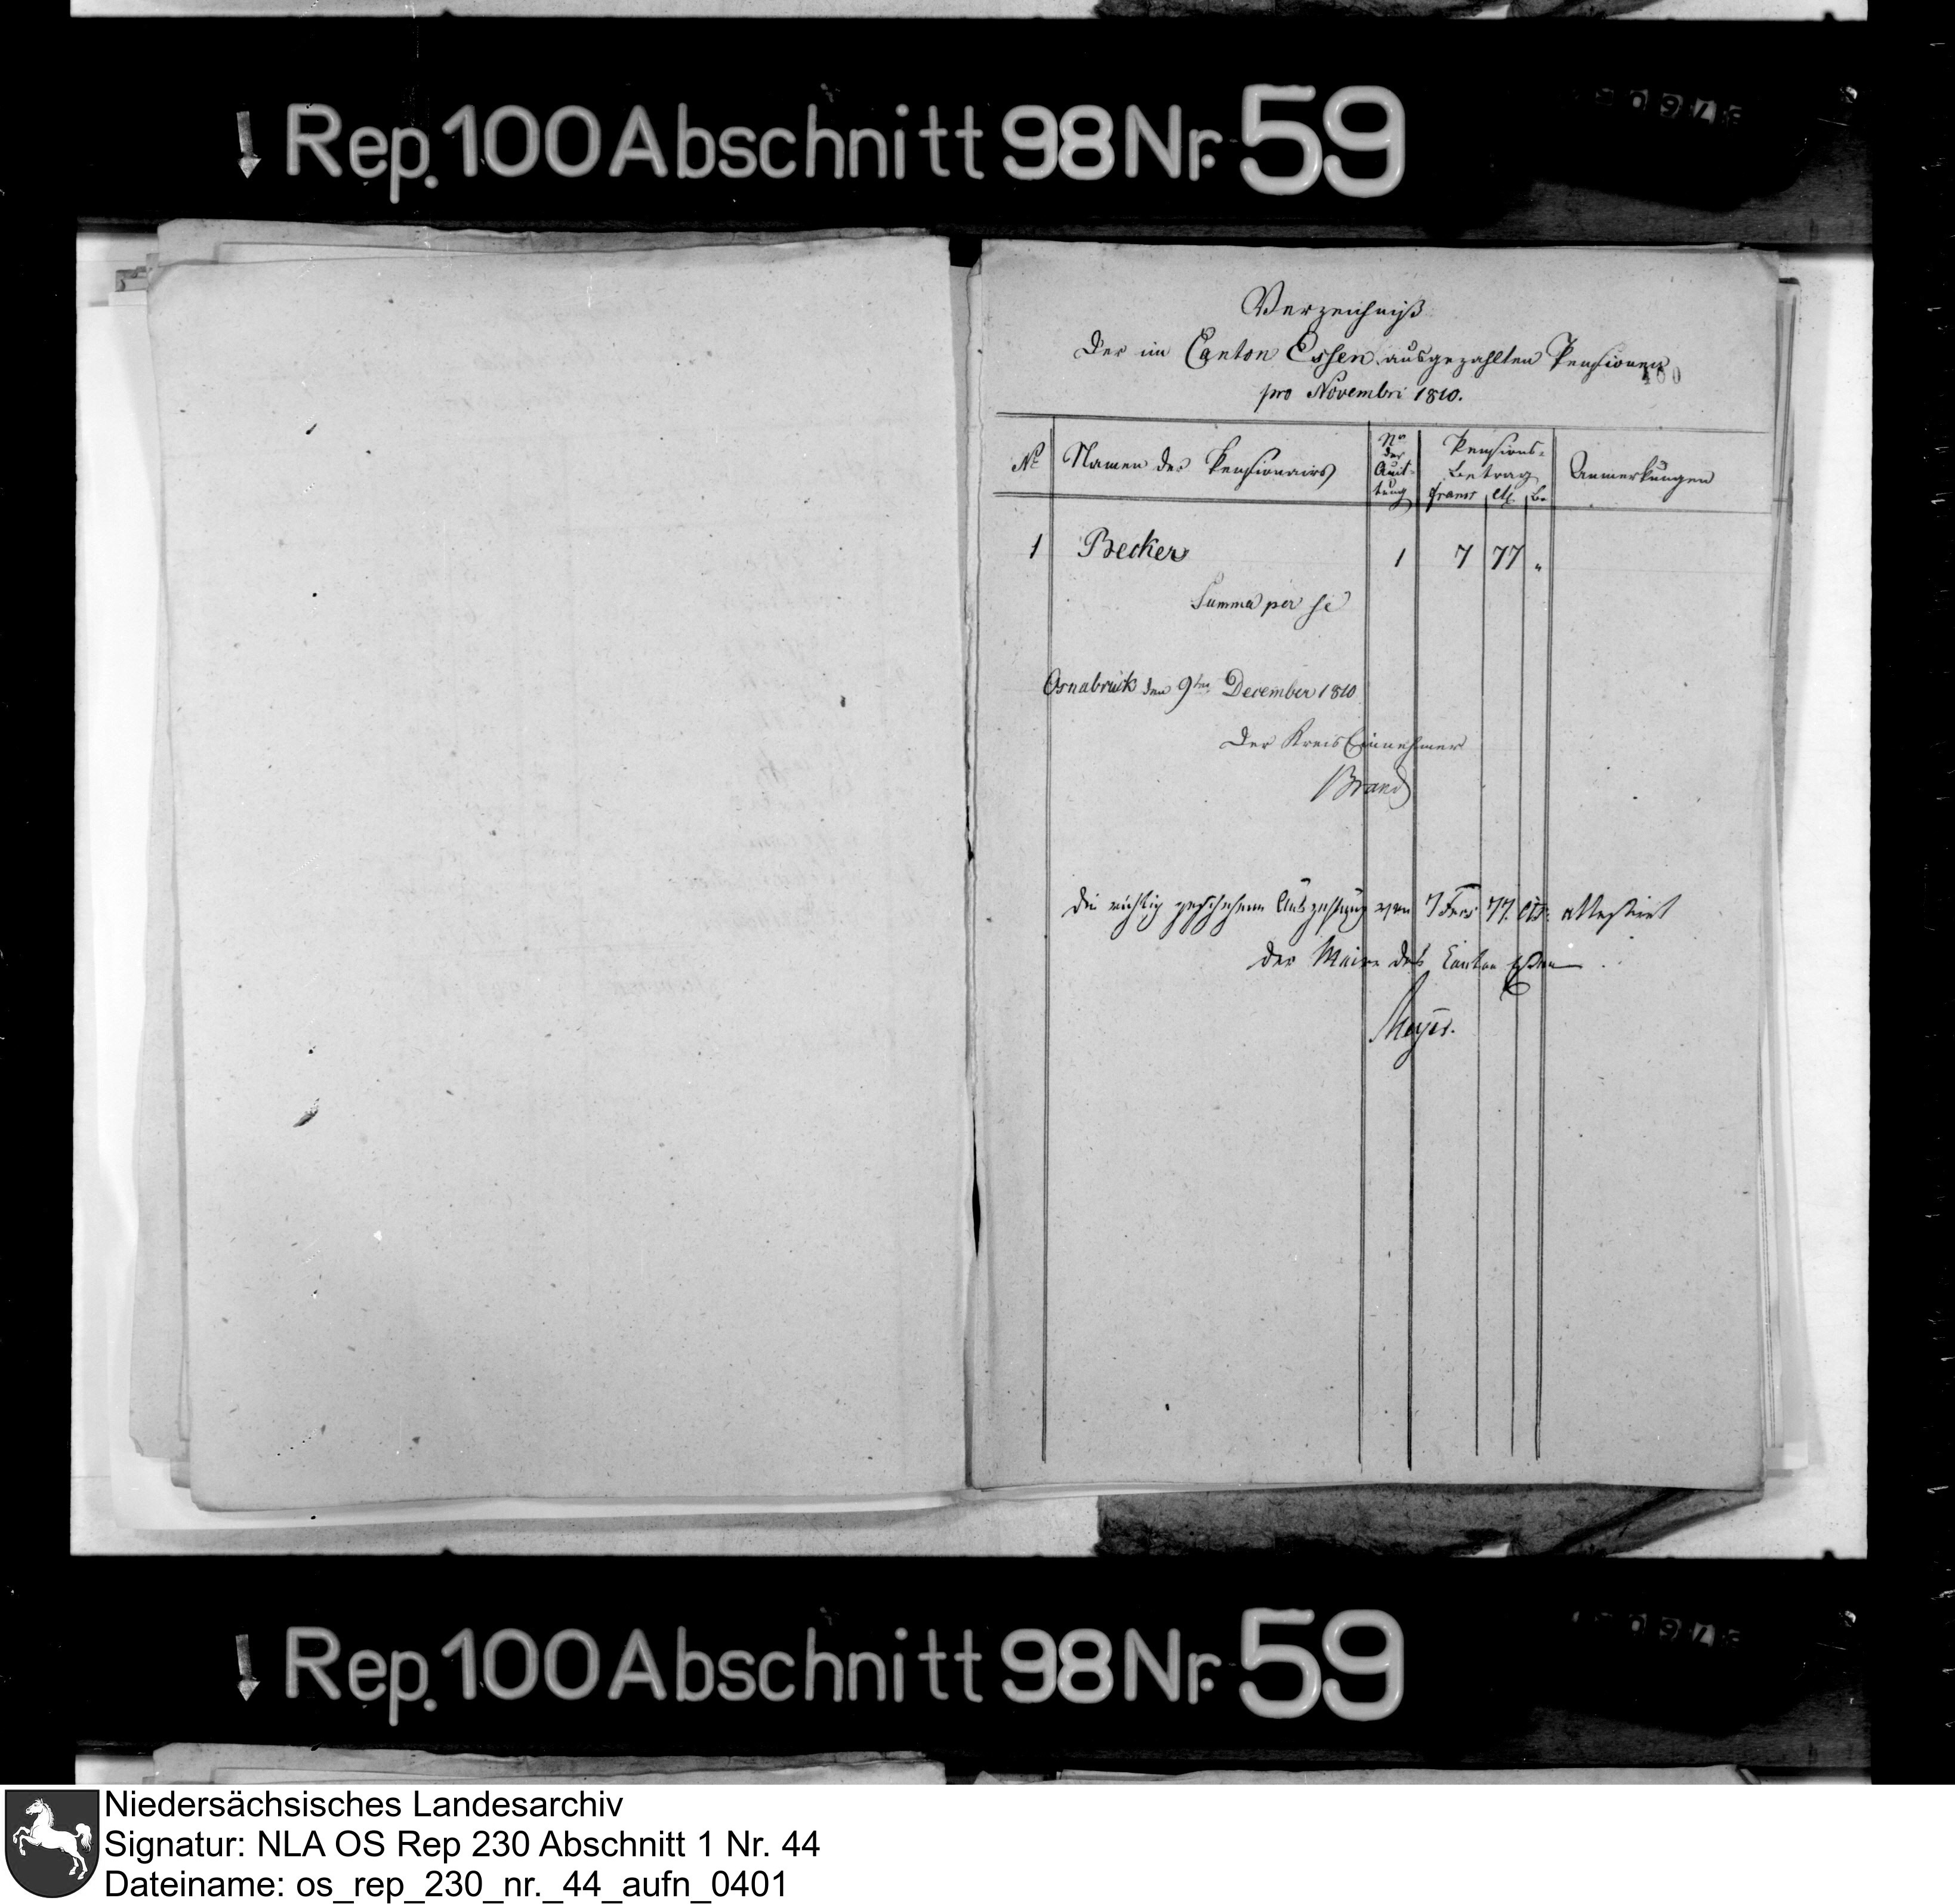 Rep. 100 Abschnitt 98 Nr. 59
Verzeichniß
Der im Canton Essen ausgezahlten Pensionen
pro Novembri 1810.
No Namen des Pensionairs No der Quittung Pensions- Betrag Anmerkungen
francs Ct.
1 Becker 1 7 77 "
Summa per se
Osnabrück den 9ten December 1810
Der Kreis Einnehmer
Brand
Die richtig geschehene Auszahlung von 7 Frcs 77. Ct: attestirt
der Maire des Canton Essen
Meyer.
Rep. 100 Abschnitt 98 Nr. 59
Niedersächsisches Landesarchiv
Signatur: NLA OS Rep 230 Abschnitt 1 Nr. 44
Dateiname: os_rep_230_nr._44_aufn_0401